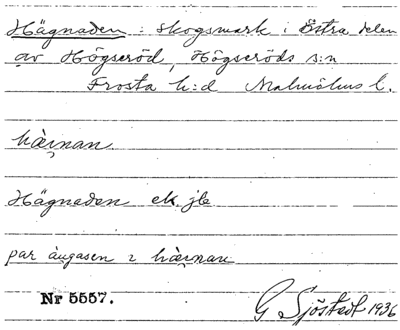 Hägnaden : skogsmark i Östra delen
av Högseröd, Högseröds s:n
Frosta h:d Malmöhus l.
hæ̀rnan
Hägnaden ek. jb
par ångasen i hæ̀rnan
Nr 5557.
G Sjöstedt 1936